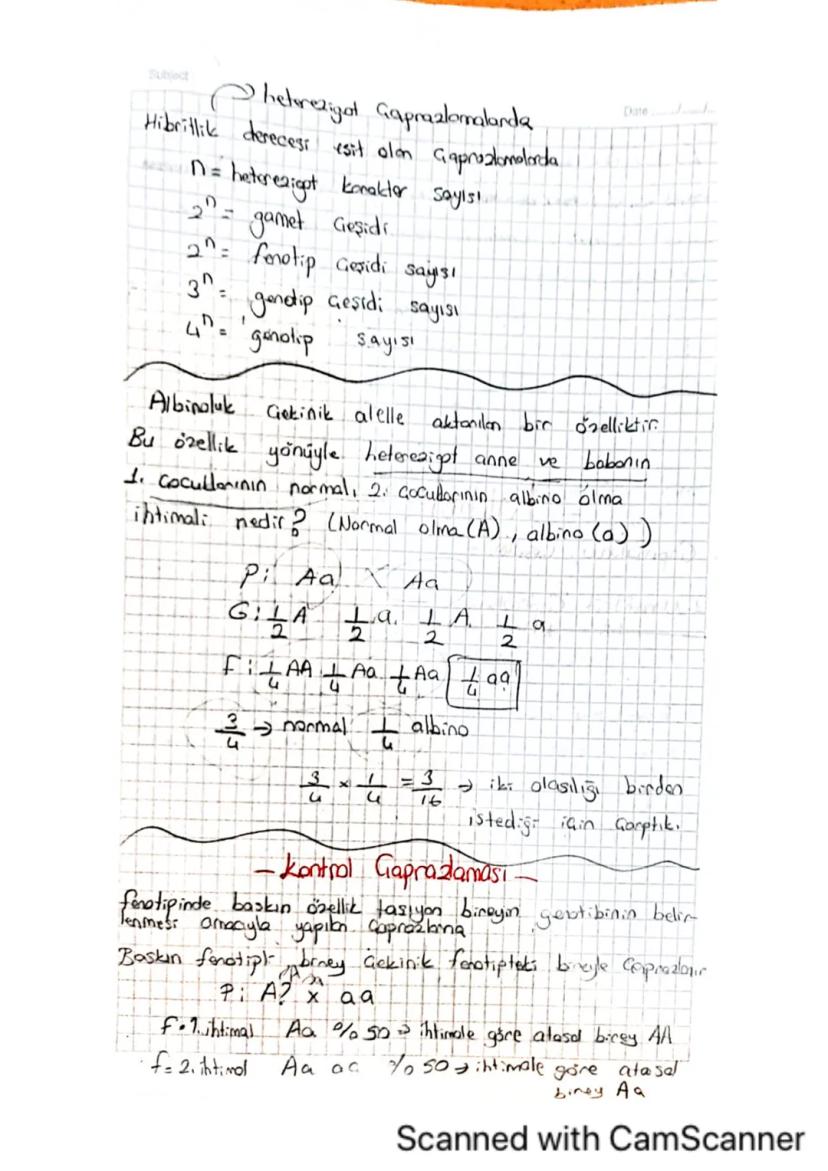 Subject
Date
heterezigot Çaprazlamalarda
Hibritlik derecesi eşit olan Çaprazlamalarda
n = heterezigot karakter sayısı
2ⁿ = gamet Çeşidi
2ⁿ = fenotip Çeşidi sayısı
3ⁿ = genotip Çeşidi sayısı
4ⁿ = genotip sayısı
Albinoluk Çekinik alelle aktarılan bir özelliktir
Bu özellik yönüyle heterezigot anne ve babanın
1. çocuklarının normal, 2. çocuklarının albino olma
ihtimali nedir? (Normal olma (A), albino (a))
P: Aa X Aa
G: 1/2 A 1/2 a 1/2 A 1/2 a
F: 1/4 AA 1/4 Aa 1/4 Aa 1/4 aa
3/4 → normal 1/4 albino
3/4 x 1/4 = 3/16 → iki olasılığı birden
istediği için Çarptık.
- Kontrol Çaprazlaması -
fenotipinde baskın özellik taşıyan bireyin belir-
lenmesi amacıyla yapılan Çaprazlama
Baskın fenotipli birey Çekinik fenotipteki bireyle Çaprazlanır
P: A? x aa
F. 1. ihtimal Aa %50 → ihtimale göre atasal birey AA
f = 2. ihtimal Aa aa %50 → ihtimale göre atasal
birey Aa
Scanned with CamScanner